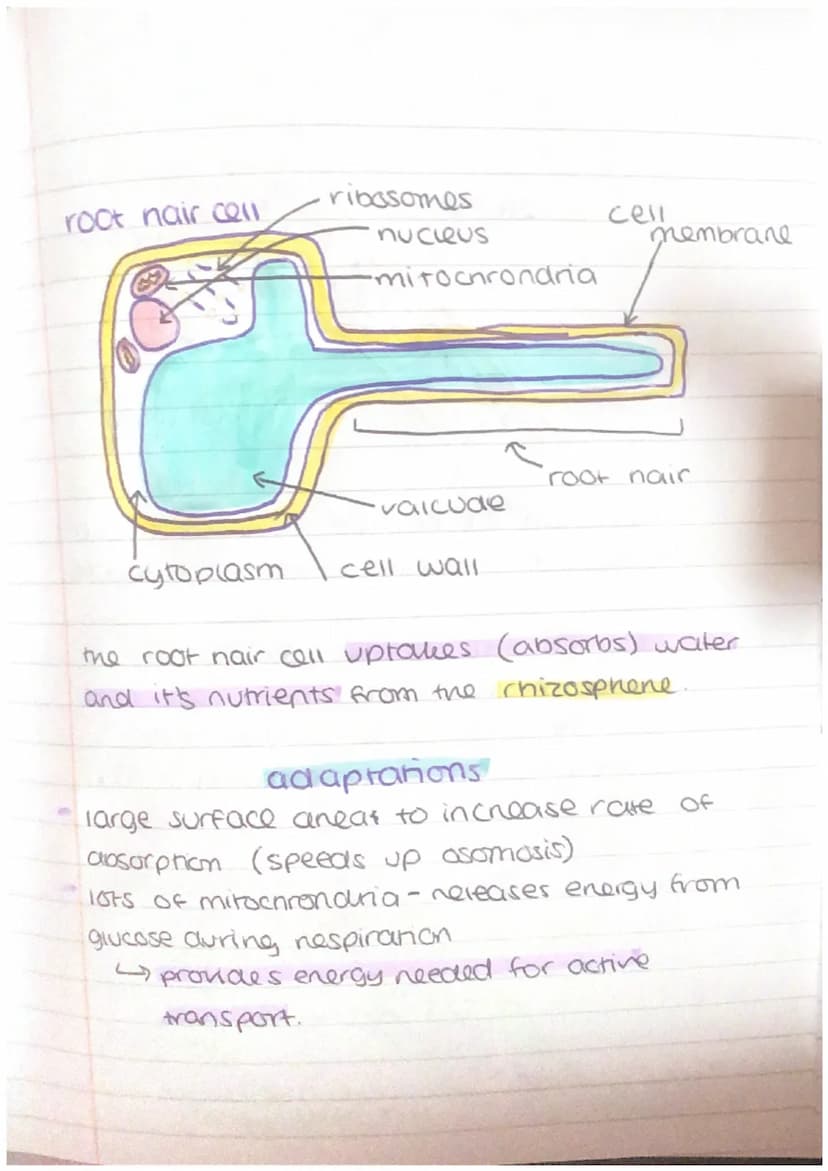 root hair cell
ribosomes
nucleus
mitochrondria
cell
membrane
root hair
valcuoe
cell wall
cytoplasm
the root hair cell uptakes (absorbs) water
and it's nutrients from the rhizosphere.
adaptations
- large surface areat to increase rate of
absorption (speeds up osomosis)
- lots of mitochrondria - releases energy from
glucose during respiration
↳ provides energy needed for active
transport.